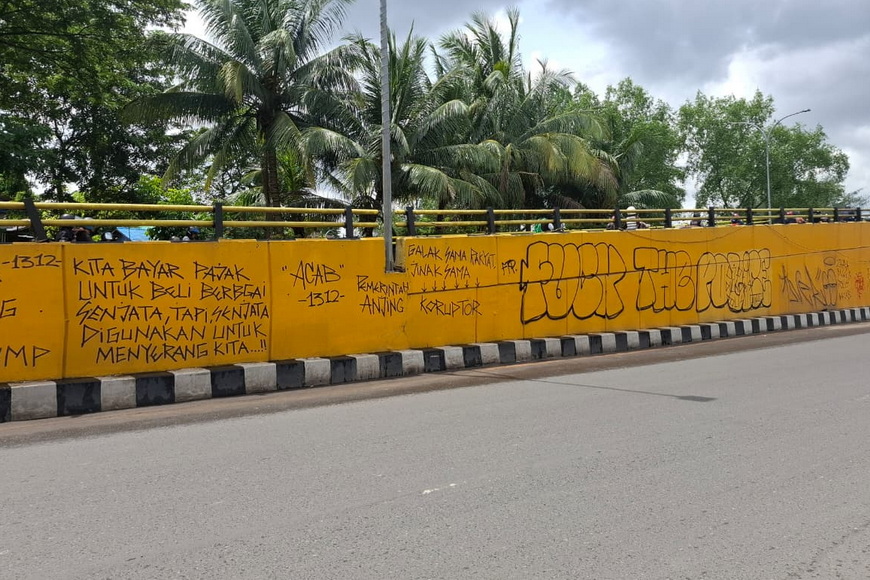 -1312-
NG
UMP
KITA BAYAR PAJAK
UNTUK BELI BERBGAI
SENJATA, TAPI SENJATA
DIGUNAKAN UNTUK
MENYERANG KITA...!!
"ACAB"
-1312-
PEMERINTAH
ANJING
GALAK SAMA RAKYAT.
JINAK SAMA
KORUPTOR
FUCK THE POLICE